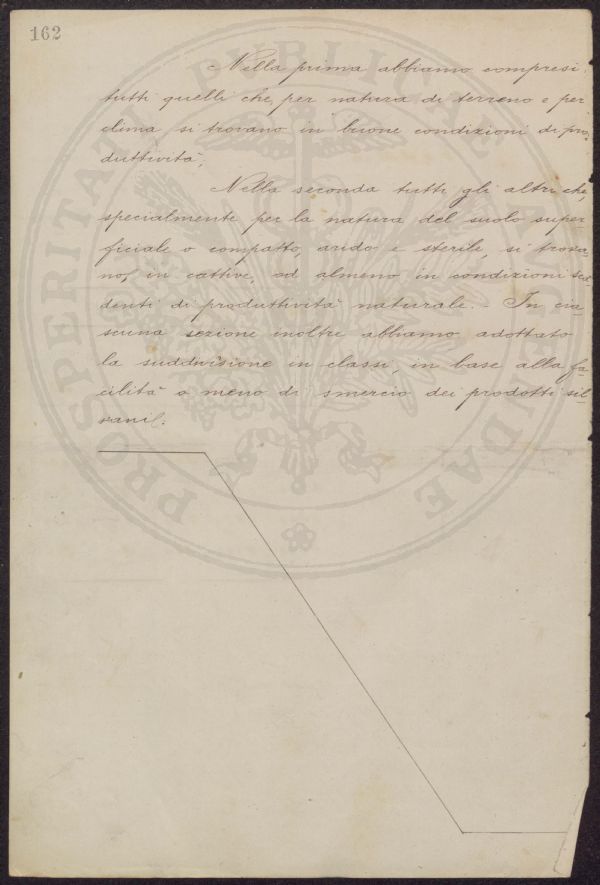 162
Nella prima abbiamo compresi
tutti quelli che, per natura di terreno e per
clima si trovano in buone condizioni di pro-
duttività;
Nella seconda tutti gli altri che,
specialmente per la natura del suolo super-
ficiale o compatto, arido e sterile, si trova-
no, in cattive, od almeno in condizioni sca-
denti di produttività naturale. - In cia-
scuna sezione inoltre abbiamo adottato
la suddivisione in classi, in base alla fa-
cilità o meno di smercio dei prodotti sil-
vani:
PROSPERITATI PUBLICAE AUGENDAE